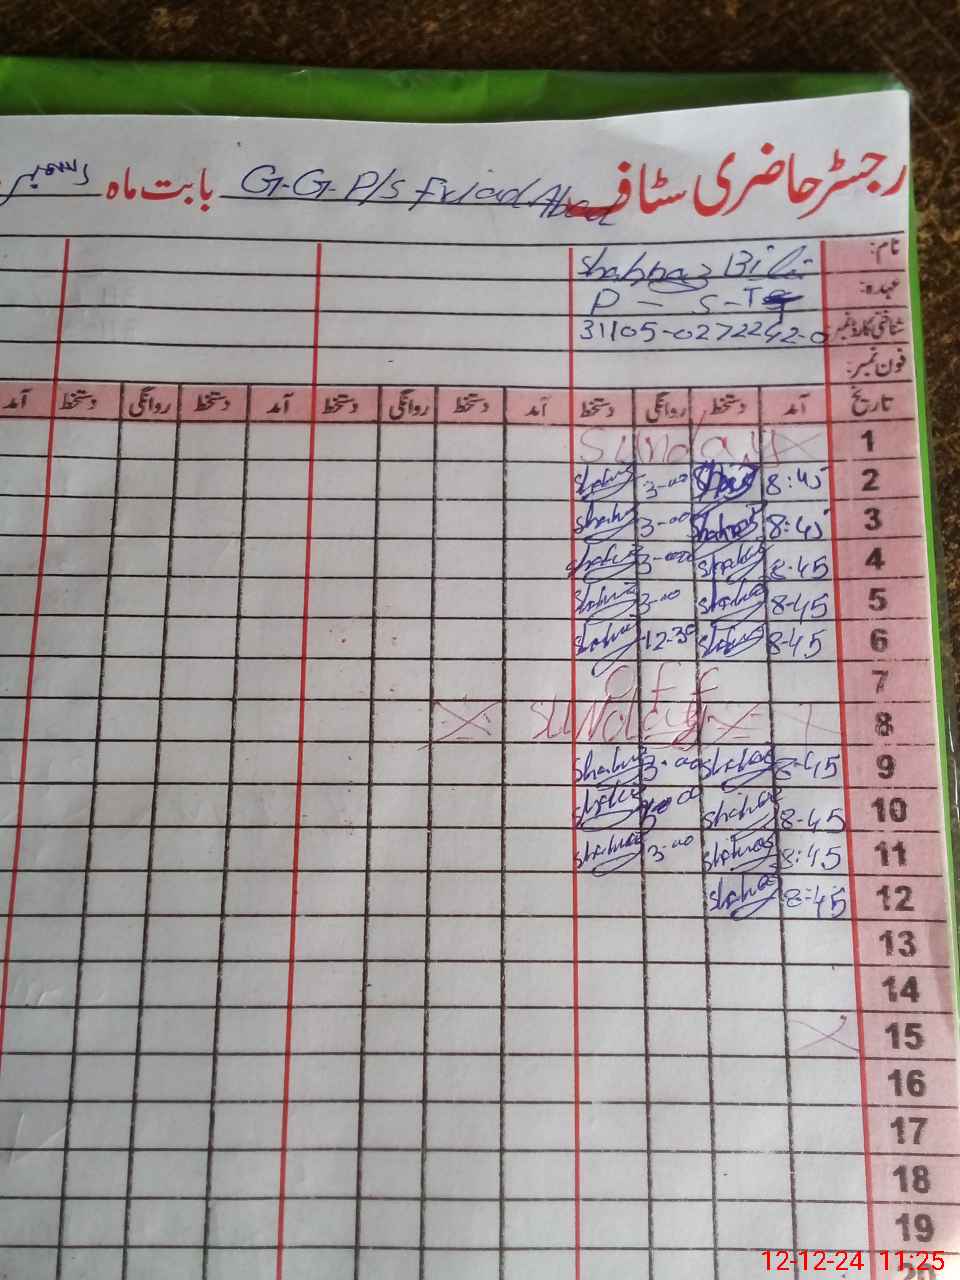 رجسٹر حاضری سٹاف G-G-P/S Friad Abad بابت ماہ دسمبر
نام: Shahnaz Bibi
عہدہ: P - S-T
شناختی کارڈ نمبر 31105-0272242-0
فون نمبر:
تاریخ آمد دستخط روانگی دستخط آمد دستخط روانگی دستخط آمد دستخط روانگی دستخط آمد
1 Sunday
2 8:45 Shahnaz 3-00 Shahnaz
3 8:45 Shahnaz 3-00 Shahnaz
4 8-45 Shahnaz 3-00 Shahnaz
5 8-45 Shahnaz 3-00 Shahnaz
6 8-45 Shahnaz 12-30 Shahnaz
7 off
8 Sunday
9 8-45 Shahnaz 3-00 Shahnaz
10 8-45 Shahnaz Shahnaz
11 8:45 Shahnaz 3-00 Shahnaz
12 8:45 Shahnaz
13
14
15
16
17
18
19
20
12-12-24 11:25